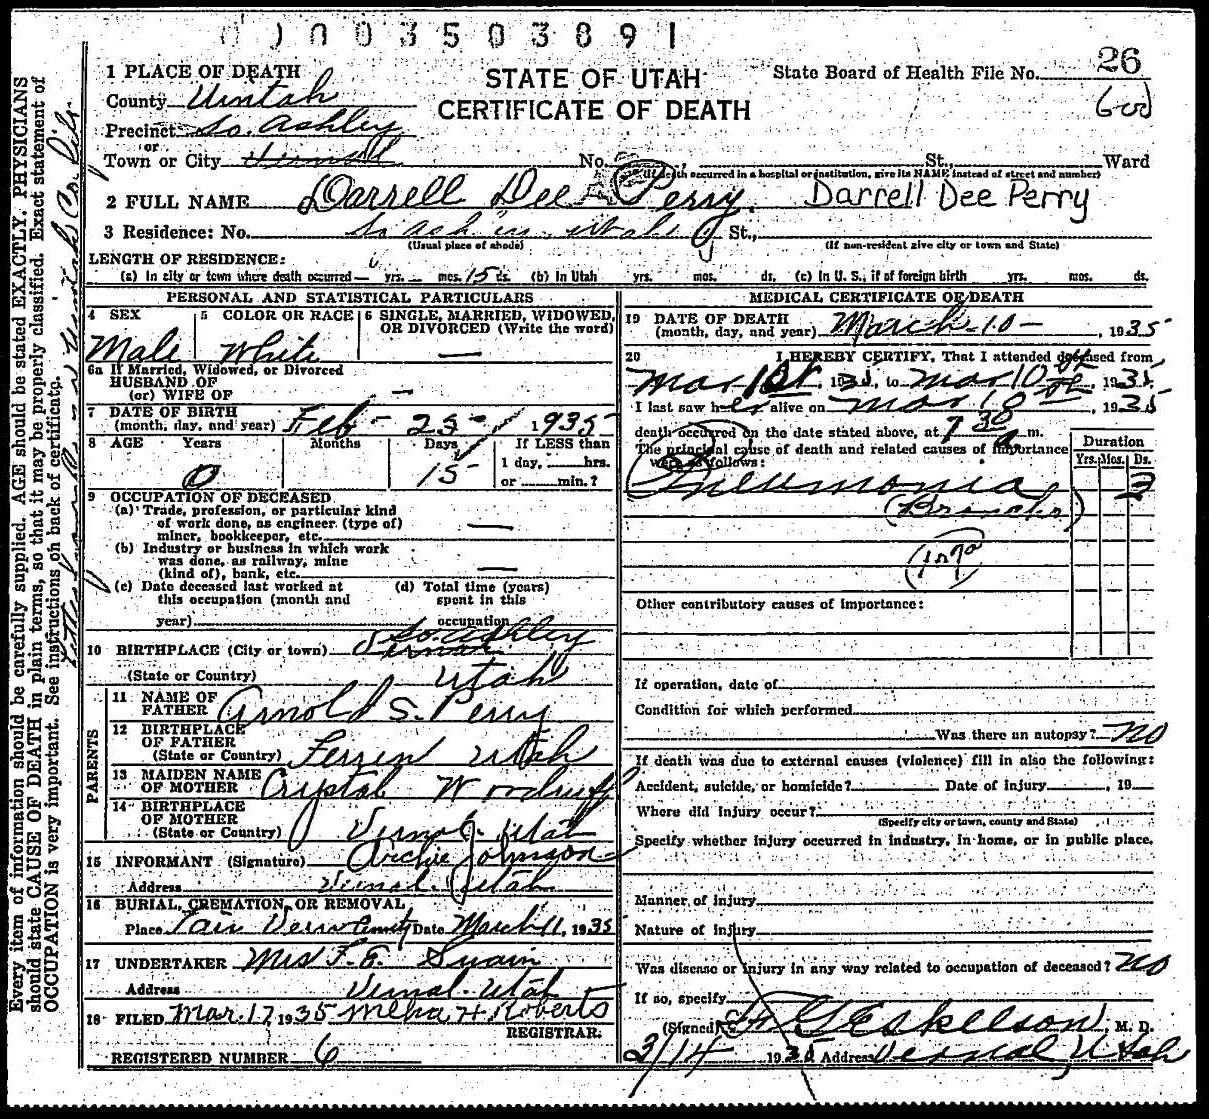 0003503891
1 PLACE OF DEATH
STATE OF UTAH
CERTIFICATE OF DEATH
State Board of Health File No. 26
County Uintah
Precinct So. Ashley
or
Town or City Vernal No. St., Ward
(If death occurred in a hospital or institution, give its NAME instead of street and number)
2 FULL NAME Darrell Dee Perry. Darrell Dee Perry
3 Residence: No. So Ashley Utah St.,
(Usual place of abode) (If non-resident give city or town and State)
LENGTH OF RESIDENCE:
(a) In city or town where death occurred — yrs. — mos. 15 ds. (b) In Utah yrs. mos. ds. (c) In U. S., if of foreign birth yrs. mos. ds.
PERSONAL AND STATISTICAL PARTICULARS
4 SEX Male
5 COLOR OR RACE White
6 SINGLE, MARRIED, WIDOWED, OR DIVORCED (Write the word) —
6a If Married, Widowed, or Divorced
HUSBAND OF
(or) WIFE OF —
7 DATE OF BIRTH
(month, day, and year) Feb - 25 - 1935
8 AGE Years Months Days If LESS than
0 15 1 day, hrs.
or min.?
9 OCCUPATION OF DECEASED
(a) Trade, profession, or particular kind
of work done, as engineer (type of)
miner, bookkeeper, etc. —
(b) Industry or business in which work
was done, as railway, mine
(kind of), bank, etc. —
(c) Date deceased last worked at
this occupation (month and
year)
(d) Total time (years)
spent in this
occupation
So. Ashley
10 BIRTHPLACE (City or town) Vernal
(State or Country) Utah
PARENTS
11 NAME OF
FATHER Arnold S. Perry
12 BIRTHPLACE
OF FATHER
(State or Country) Ferren Utah
13 MAIDEN NAME
OF MOTHER Crystal Woodruff
14 BIRTHPLACE
OF MOTHER
(State or Country) Vernal. Utah
15 INFORMANT (Signature) Archie Johnson
Address Vernal. Utah
16 BURIAL, CREMATION, OR REMOVAL
Place Date March 11, 1935
17 UNDERTAKER Mrs F. E. Swain
Address Vernal. Utah
18 FILED Mar. 17, 1935 H. Roberts
REGISTRAR.
REGISTERED NUMBER 6
MEDICAL CERTIFICATE OF DEATH
19 DATE OF DEATH
(month, day, and year) March - 10 - , 1935
20 I HEREBY CERTIFY, That I attended deceased from
Mar 1st 1935, to Mar 10th, 1935.
I last saw her alive on Mar 10, 1935
death occurred on the date stated above, at 7 30 a m.
The principal cause of death and related causes of importance
were as follows:
Duration
Yrs. Mos. Ds.
Pneumonia
(Broncho)
107a
Other contributory causes of importance:
If operation, date of
Condition for which performed
Was there an autopsy? no
If death was due to external causes (violence) fill in also the following:
Accident, suicide, or homicide? Date of injury , 19
Where did injury occur?
(Specify city or town, county and State)
Specify whether injury occurred in industry, in home, or in public place.
Manner of injury
Nature of injury
Was disease or injury in any way related to occupation of deceased? no
If so, specify
(Signed) Eskelson, M. D.
3/14 1935 Address Vernal, Utah
Every item of information should be carefully supplied. AGE should be stated EXACTLY. PHYSICIANS
should state CAUSE OF DEATH in plain terms, so that it may be properly classified. Exact statement of
OCCUPATION is very important. See instructions on back of certificate.